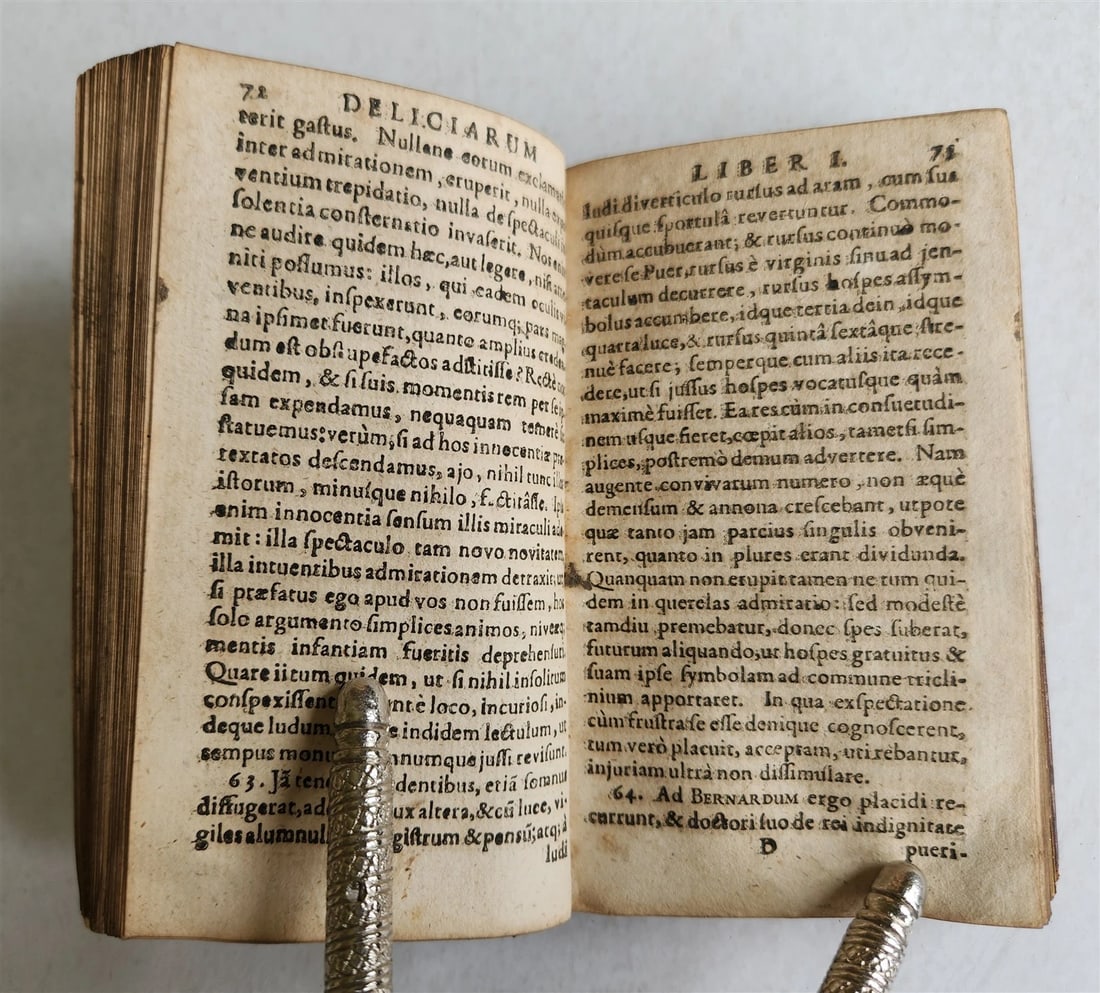 72 DELICIARUM
terit gaſtus. Nullane eorum exclama
inter admirationem, eruperit, nulla
ventium trepidatio, nulla de ſpectaculi
ſolentia conſternatio invaſerit. Nos
ne audire quidem hæc, aut legere, niſi
niti poſſumus: illos, qui eadem oculis
ventibus, inſpexerunt, eorumq; pars
na ipſimet fuerunt, quanto amplius
dum eſt obſtupefactos adſtitiſſe? Rectè
quidem, & ſi ſuis momentis rem per ſe
ſam expendamus, nequaquam temerè
ſtatuemus: verùm, ſi ad hos innocentiæ
textatos deſcendamus, ajo, nihil tunc
iſtorum, minuſque nihilo, f.ctitâſſe.
enim innocentia ſenſum illis miraculi
mit: illa ſpectaculo tam novo novitatem,
illa intuentibus admirationem detraxit:
ſi præfatus ego apud vos non fuiſſem,
ſolo argumento ſimplices animos, nivex
mentis infantiam fueritis deprehenſuri.
Quare ii tum quidem, ut ſi nihil inſolitum
conſpexiſſent nt è loco, incurioſi, in-
deque ludum, e indidem lectulum, ut
sempus monu nnumque juſſi reviſunt.
63. Jã ten dentibus, etiã ſomnus
diffugerat, ad ux altera, & cũ luce, vi-
giles alumnul giſtrum & penſũ; atq; à
ludi
LIBER I. 73
ludi diverticulo rurſus ad aram, cum ſua
quiſque ſportulâ revertuntur. Commo-
dùm accubuerant; & rurſus continuò mo-
vere ſe Puer, rurſus è virginis ſinu ad jen-
taculum decurrere, rurſus hoſpes aſſym-
bolus accumbere, idque tertia dein, idque
quarta luce, & rurſus quintâ ſextâque ſtre-
nuè facere; ſemperque cum aliis ita rece-
dere, ut ſi juſſus hoſpes vocatuſque quàm
maximè fuiſſet. Ea res cùm in conſuetudi-
nem uſque fieret, cœpit alios, tametſi ſim-
plices, poſtremò demum advertere. Nam
augente convivarum numero, non æquè
demenſum & annona creſcebant, utpote
quæ tanto jam parcius ſingulis obveni-
rent, quanto in plures erant dividunda.
Quanquam non erupit tamen ne tum qui-
dem in querelas admiratio: ſed modeſtè
tamdiu premebatur, donec ſpes ſuberat,
futurum aliquando, ut hoſpes gratuitus &
ſuam ipſe ſymbolam ad commune tricli-
nium apportaret. In qua exſpectatione
cùm fruſtra ſe eſſe denique cognoſcerent,
tum verò placuit, acceptam, uti rebantur,
injuriam ultrà non diſſimulare.
64. Ad BERNARDUM ergo placidi re-
currunt, & doctori ſuo de rei indignitate
D pueri-